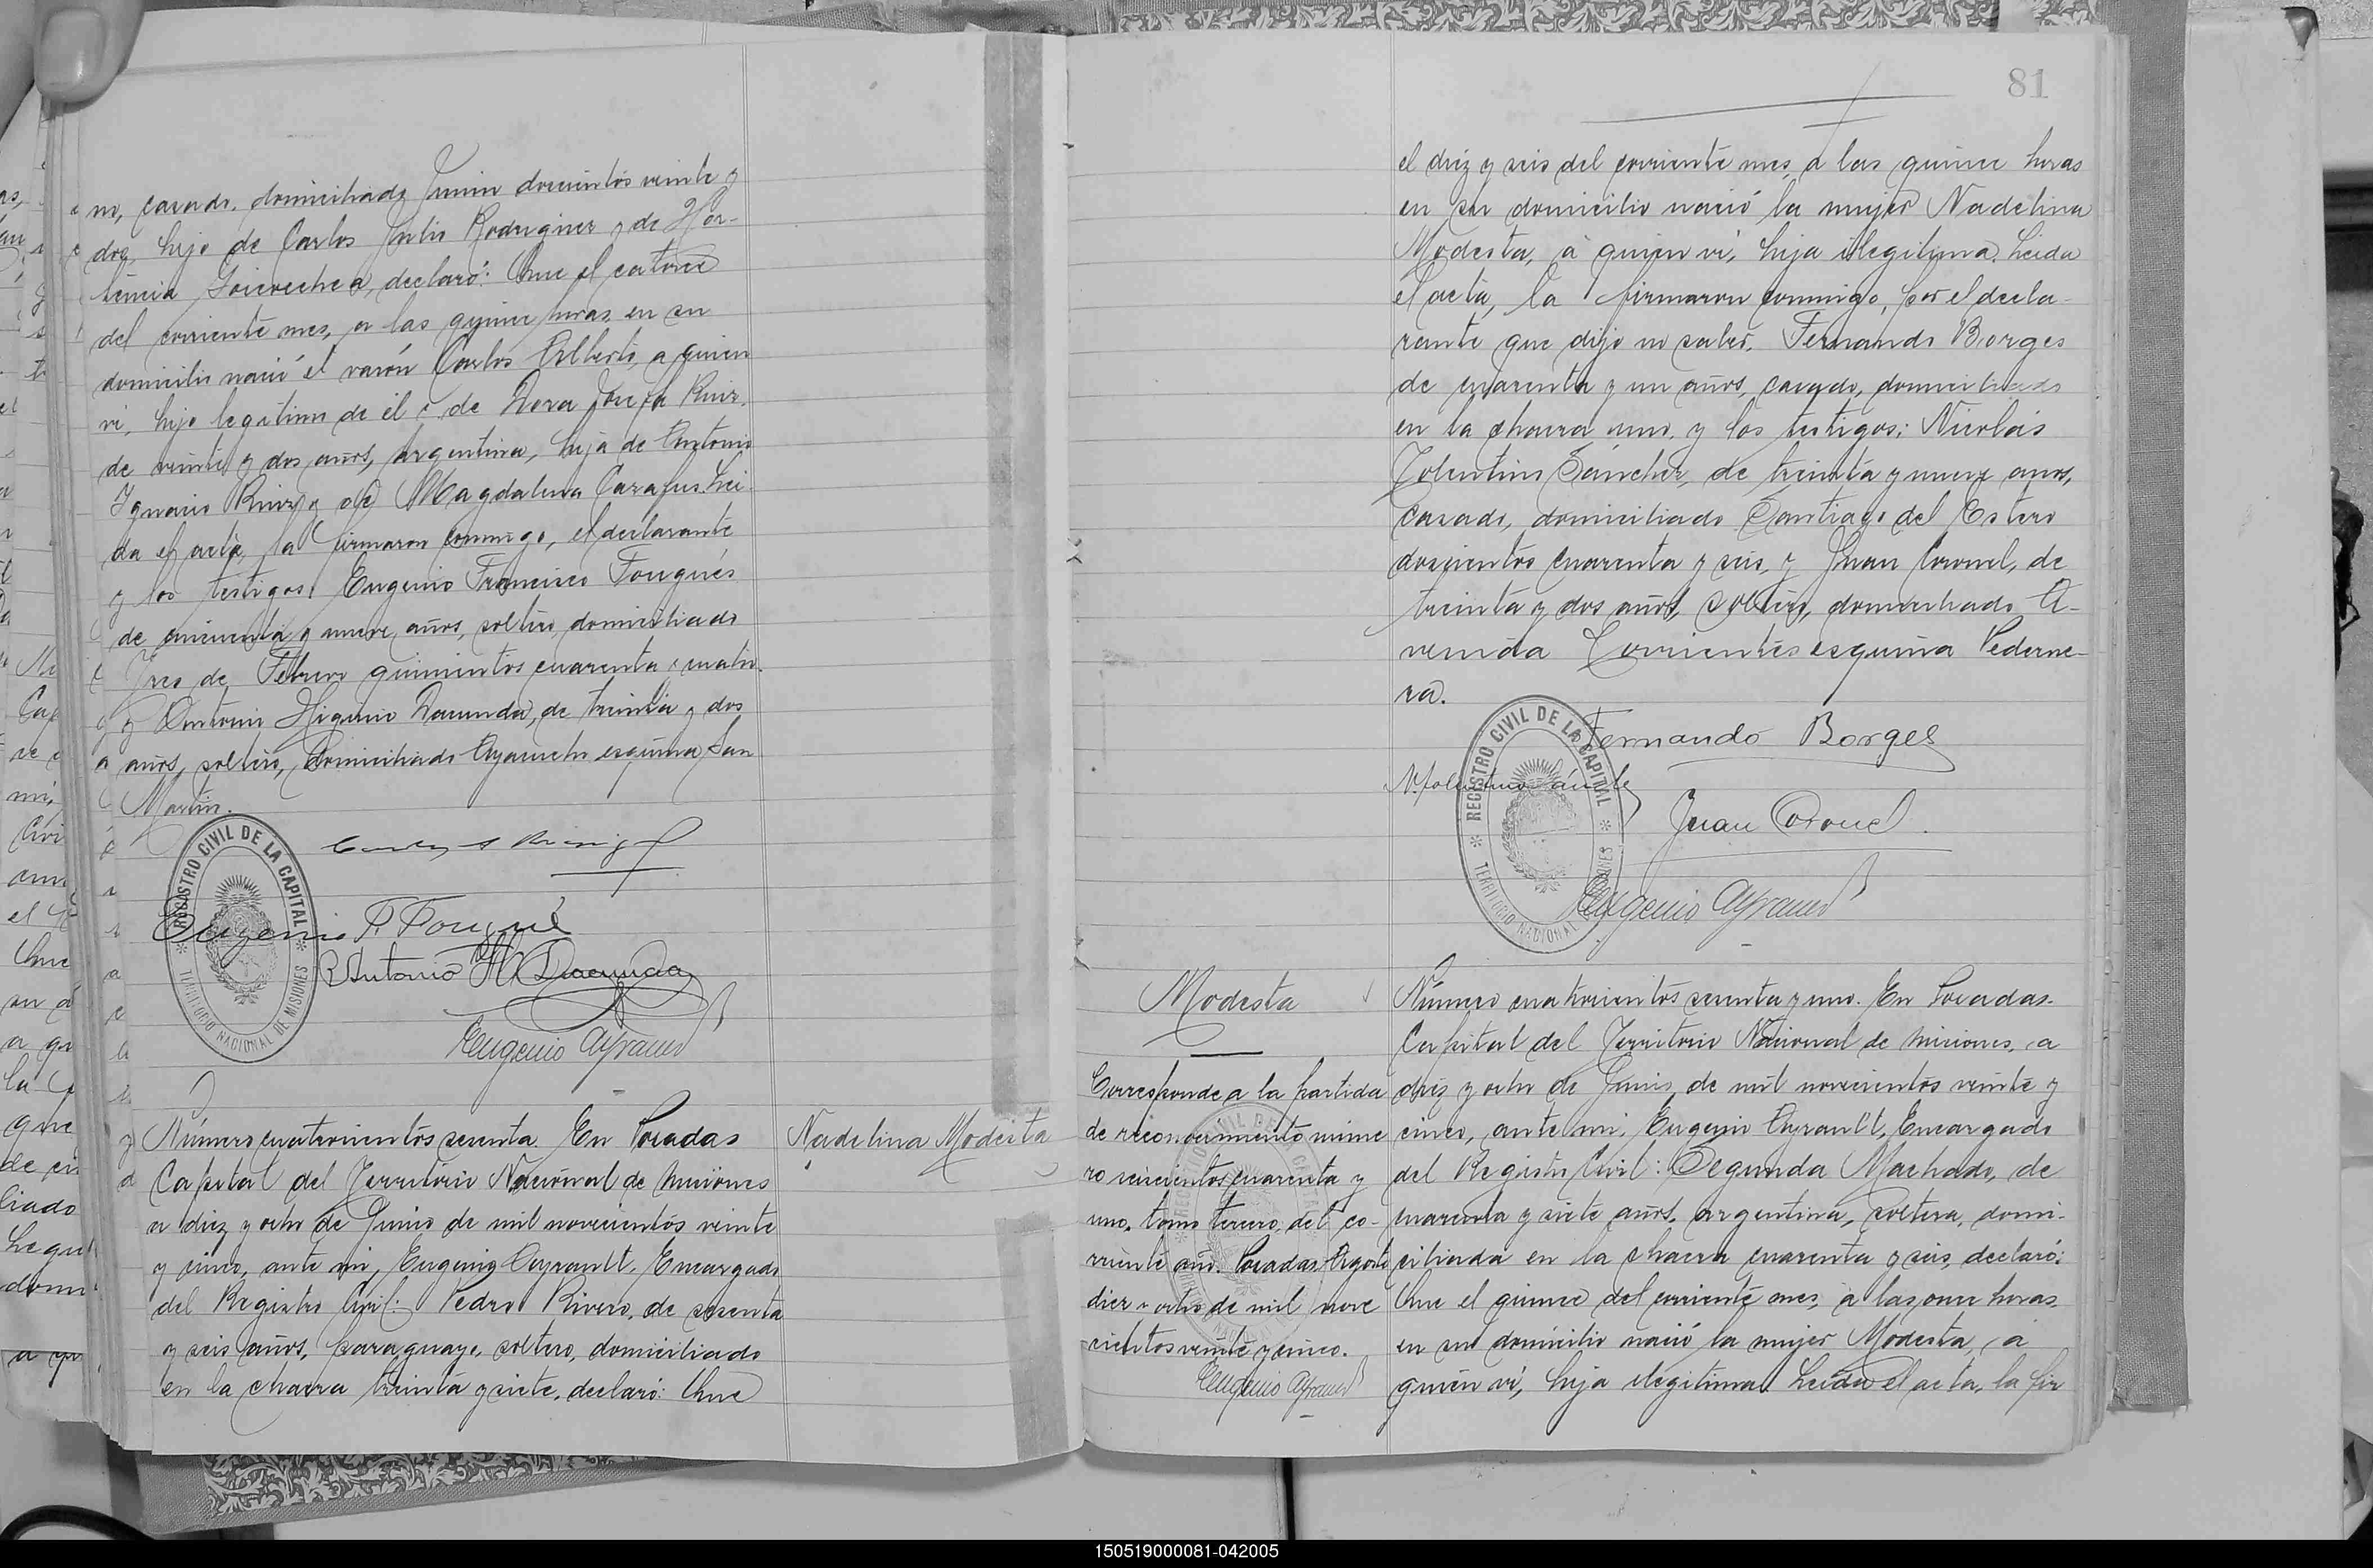 no, casado, domiciliado Junín doscientos veinte y
dos, hijo de Carlos Julio Rodriguez y de Hor-
tencia Goicoechea, declaró: Que el catorce
del corriente mes, a las quince horas en su
domicilio nació el varón Carlos Alberto, a quien
ví, hijo legítimo de él y de Dora Josefa Ruiz,
de veinte y dos años, argentina, hija de Antonio
Ignacio Ruiz y de Magdalena Leí-
da el acta, la firmaron conmigo, el declarante
y los testigos: Eugenio Francisco Fougués
de cincuenta y nueve años, soltero, domiciliado
Tres de Febrero quinientos cuarenta y cuatro
y Antonio Higinio Dacunda, de treinta y dos
años, soltero, domiciliado Ayacucho esquina San
Martín.
REGISTRO CIVIL DE LA CAPITAL
TERRITORIO NACIONAL DE MISIONES
Eugenio F Fougué
Antonio H Dacunda
Eugenio Ayrault
Número cuatrocientos sesenta. En Posadas
Capital del Territorio Nacional de Misiones
a diez y ocho de Junio de mil novecientos veinte
y cinco, ante mí, Eugenio Ayrault, Encargado
del Registro Civil: Pedro Rivero, de sesenta
y seis años, paraguayo, soltero, domiciliado
en la chacra treinta y siete, declaró: Que
Nadelina Modesta
81
el diez y seis del corriente mes, a las quince horas
en su domicilio nació la mujer Nadelina
Modesta, á quien ví, hija ilegítima. Leida
el acta, la firmaron conmigo, por el decla-
rante que dijo no saber, Fernando Borges
de cuarenta y un años, casado, domiciliado
en la chacra uno, y los testigos: Nicolás
Tolentino Sánchez, de treinta y nueve años,
casado, domiciliado Santiago del Estero
doscientos cuarenta y seis, y Juan Coronel, de
treinta y dos años, soltero, domiciliado A-
venida Corrientes esquina Pederne-
ra.
REGISTRO CIVIL DE LA CAPITAL
TERRITORIO NACIONAL DE MISIONES
Fernando Borges
N. Tolentino Sánchez
Juan Coronel
Eugenio Ayrault
Modesta
Corresponde a la partida
de reconocimiento núme
ro seiscientos cuarenta y
uno, tomo tercero, del co-
rriente año. Posadas Agosto
diez y ocho de mil nove
cientos veinte y cinco.
Eugenio Ayrault
Número cuatrocientos sesenta y uno. En Posadas.
Capital del Territorio Nacional de Misiones, a
diez y ocho de Junio de mil novecientos veinte y
cinco, ante mí, Eugenio Ayrault, Encargado
del Registro Civil: Segunda Machado, de
cuarenta y siete años, argentina, soltera, domi-
ciliada en la chacra cuarenta y seis, declaró:
Que el quince del corriente mes, a las once horas
en su domicilio nació la mujer Modesta, a
quien ví, hija ilegítima. Leida el acta, la fir
150519000081-042005